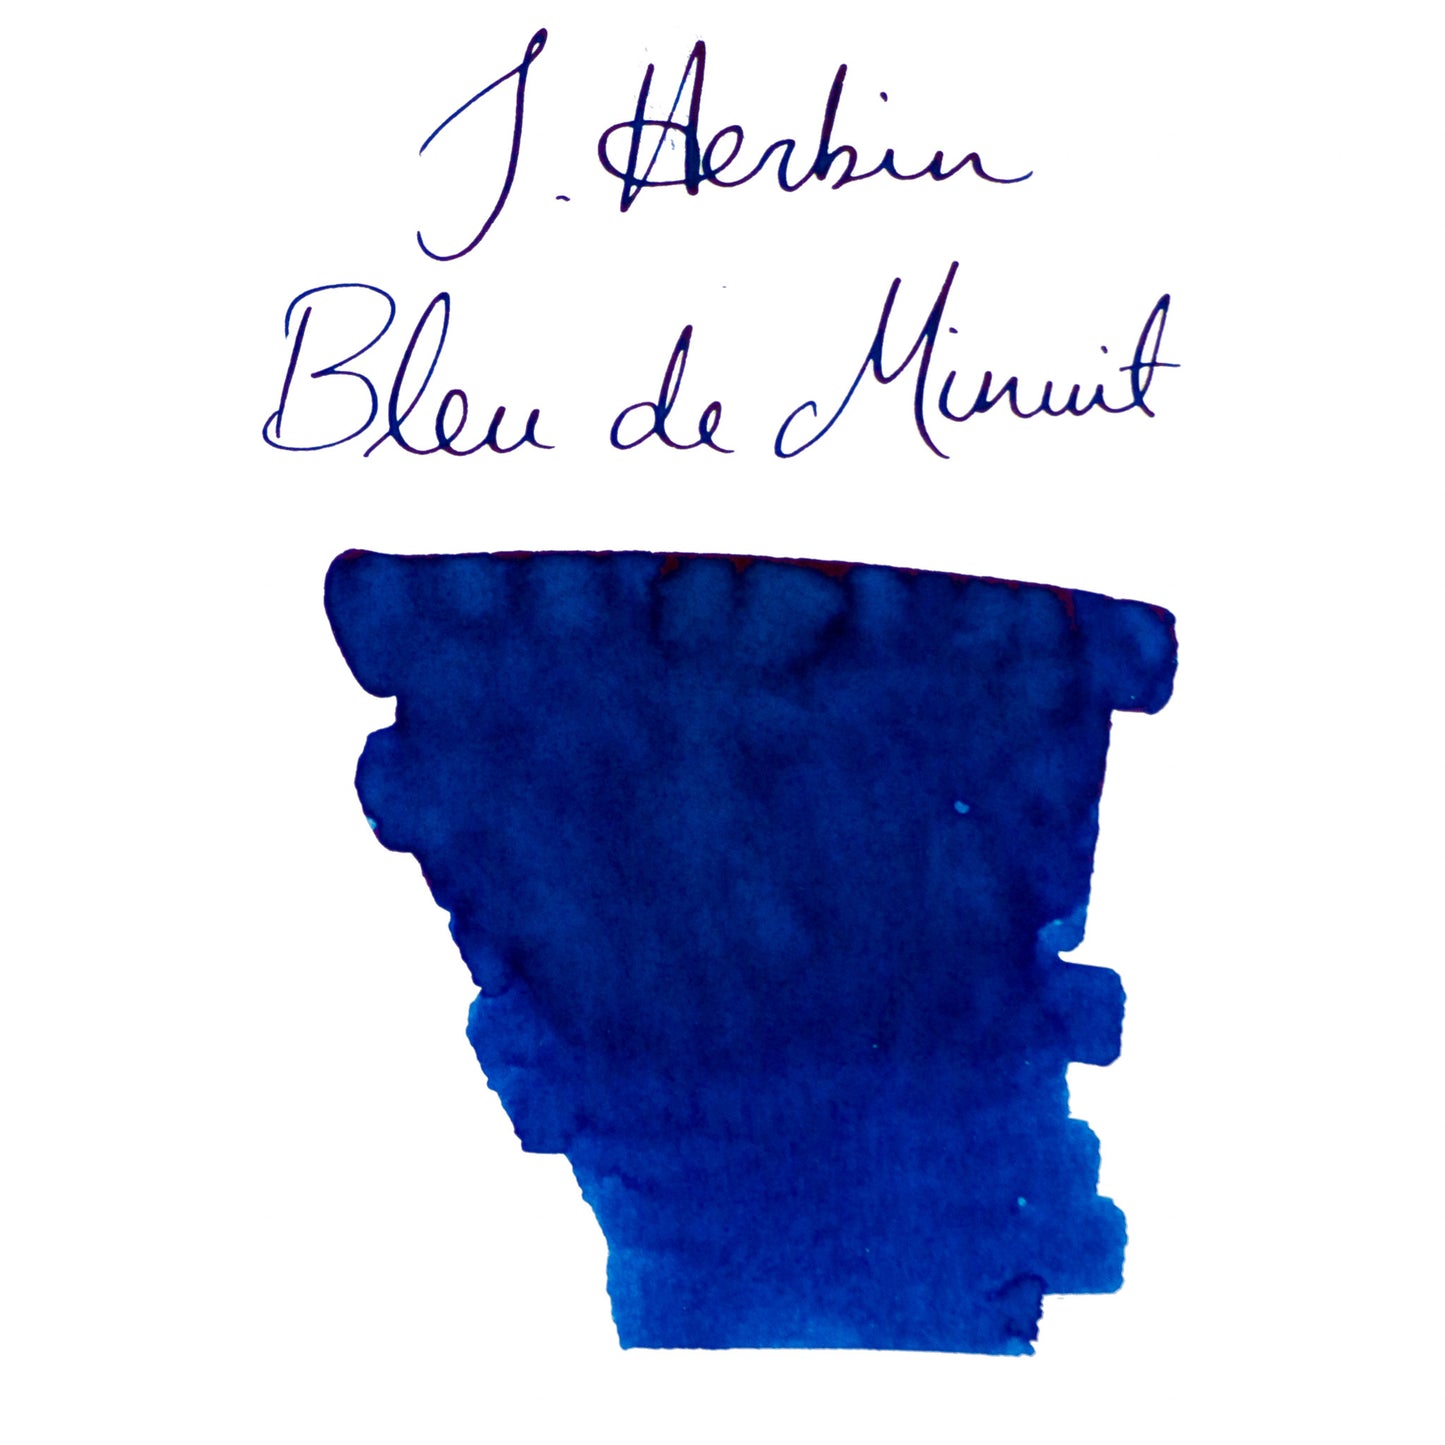 J. Herbin
Bleu de Minuit